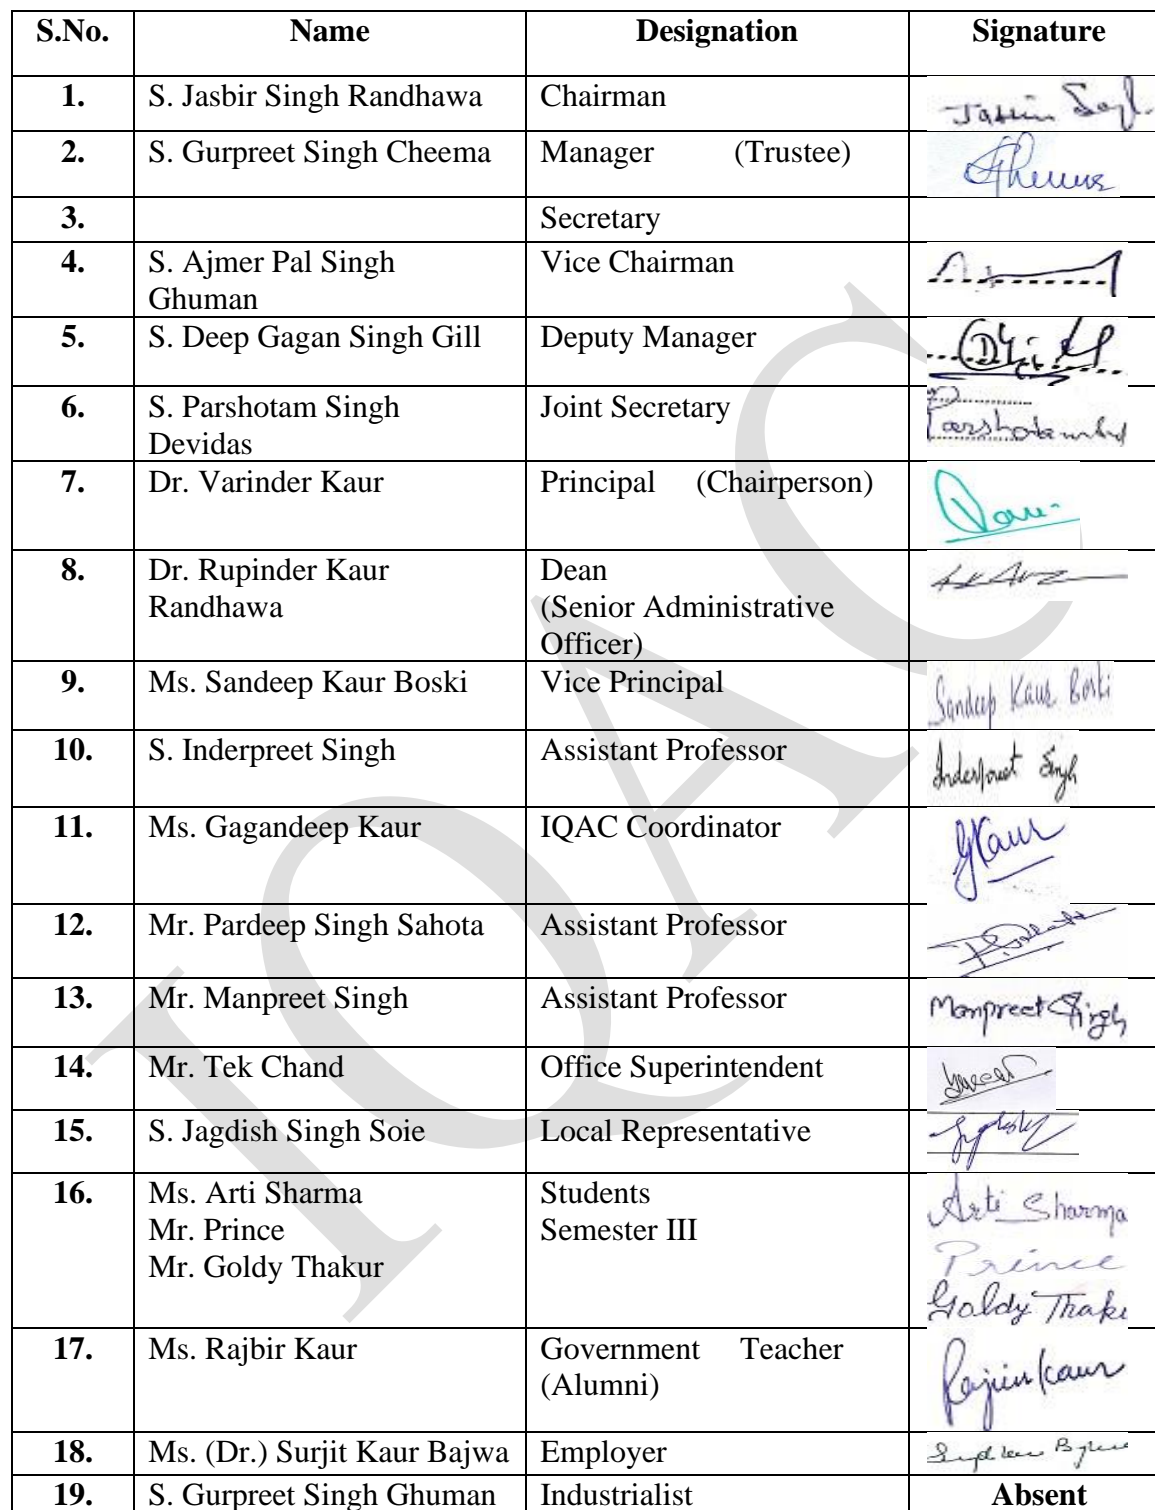 S.No. Name Designation Signature
1. S. Jasbir Singh Randhawa Chairman
2. S. Gurpreet Singh Cheema Manager (Trustee) Cheema
3. Secretary
4. S. Ajmer Pal Singh Vice Chairman
Ghuman
5. S. Deep Gagan Singh Gill Deputy Manager
6. S. Parshotam Singh Joint Secretary
Devidas
7. Dr. Varinder Kaur Principal (Chairperson)
8. Dr. Rupinder Kaur Dean
Randhawa (Senior Administrative
Officer)
9. Ms. Sandeep Kaur Boski Vice Principal Sandeep Kaur Boski
10. S. Inderpreet Singh Assistant Professor Inderpreet Singh
11. Ms. Gagandeep Kaur IQAC Coordinator GKaur
12. Mr. Pardeep Singh Sahota Assistant Professor
13. Mr. Manpreet Singh Assistant Professor Manpreet Singh
14. Mr. Tek Chand Office Superintendent
15. S. Jagdish Singh Soie Local Representative
16. Ms. Arti Sharma Students Arti Sharma
Mr. Prince Semester III Prince
Mr. Goldy Thakur Goldy Thaku
17. Ms. Rajbir Kaur Government Teacher
(Alumni)
18. Ms. (Dr.) Surjit Kaur Bajwa Employer
19. S. Gurpreet Singh Ghuman Industrialist Absent
IQAC